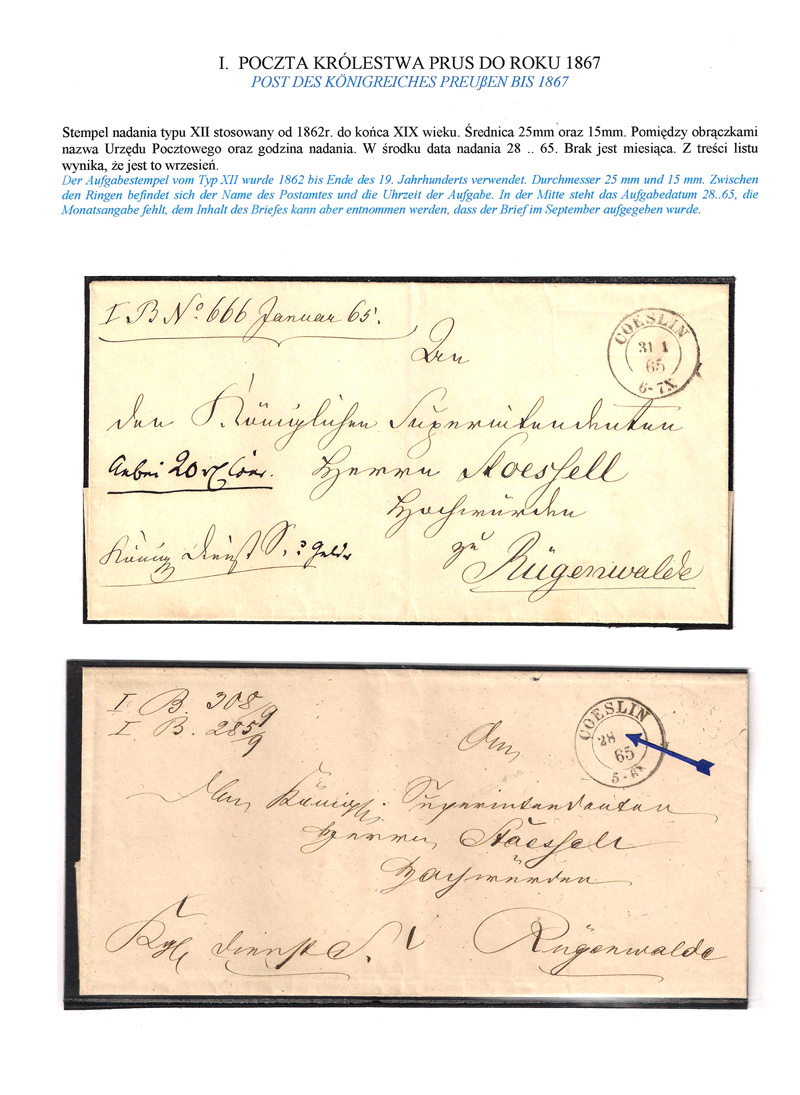 I. POCZTA KRÓLESTWA PRUS DO ROKU 1867
POST DES KÖNIGREICHES PREUßEN BIS 1867
Stempel nadania typu XII stosowany od 1862r. do końca XIX wieku. Średnica 25mm oraz 15mm. Pomiędzy obrączkami
nazwa Urzędu Pocztowego oraz godzina nadania. W środku data nadania 28 .. 65. Brak jest miesiąca. Z treści listu
wynika, że jest to wrzesień.
Der Aufgabestempel vom Typ XII wurde 1862 bis Ende des 19. Jahrhunderts verwendet. Durchmesser 25 mm und 15 mm. Zwischen
den Ringen befindet sich der Name des Postamtes und die Uhrzeit der Aufgabe. In der Mitte steht das Aufgabedatum 28..65, die
Monatsangabe fehlt, dem Inhalt des Briefes kann aber entnommen werden, dass der Brief im September aufgegeben wurde.
I B No 666 Januar 65.
COESLIN
31 1
65
6-7N
An
den Königlichen Superintendenten
Herrn Stoessell
Hochwürden
zu
Rügenwalde
I B. 308/9
I B. 285/9
COESLIN
28
65
5-6N
An
den Königl. Superintendenten
Herrn Stoessell
Hochwürden
Kgl Dienst S.
Rügenwalde